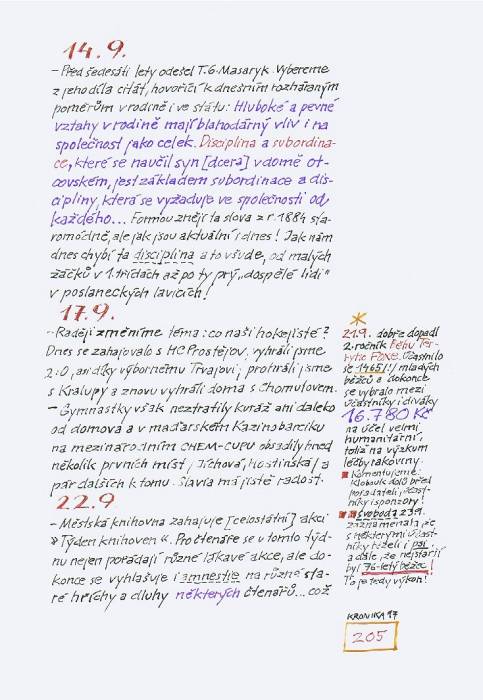 14.9.
– Před šedesáti lety odešel T.G. Masaryk. Vybereme
z jeho díla citát, hovořící k dnešním rozháraným
poměrům v rodině i ve státu: Hluboké a pevné
vztahy v rodině mají blahodárný vliv i na
společnost jako celek. Disciplina a subordina-
ce, které se naučil syn [dcera] v domě ot-
covském, jest základem subordinace a dis-
cipliny, která se vyžaduje ve společnosti od
každého... Formou znějí ta slova z r. 1884 sta-
romódně, ale jak jsou aktuální i dnes! Jak nám
dnes chybí ta disciplina a to všude, od malých
žáčků v 1. třídách až po ty prý „dospělé lidi"
v poslaneckých lavicích!
17.9.
– Raději změníme téma: co naši hokejisté?
Dnes se zahajovalo s HC Prostějov, vyhráli jsme
2:0, ani díky výbornému Trvajovi; prohráli jsme
s Kralupy a znovu vyhráli doma s Chomutovem.
– Gymnastky však neztratily kuráž ani daleko
od domova a v maďarském Kazincbarciku
na mezinárodním CHEM-CUPU obsadily hned
několik prvních míst, Jíchová, Hostinská / a
pár dalších k tomu. Slavia má jistě radost.
22.9
– Městská knihovna zahajuje [celostátní] akci
» Týden knihoven «. Pro čtenáře se v tomto týd-
nu nejen pořádají různé lákavé akce, ale do-
konce se vyhlašuje i amnestie na různé sta-
ré hříchy a dluhy některých čtenářů... což
21.9. dobře dopadl
2. ročník Běhu Ter-
ryho Foxe. Účastnilo
se 1465 /!/ mladých
běžců a dokonce
se vybralo mezi
účastníky i diváky
16.780 Kč
na účel velmi
humanitární,
totiž na výzkum
léčby rakoviny.
Komentujeme:
Klobouk dolů před
pořadateli, účast-
níky i sponzory!
Svoboda 23.9.
zaznamenala, že
s některými účast-
níky běželi i psi
a dále, že nejstarší
byl 76-letý běžec!
To je tedy výkon!
KRONIKA 97
205